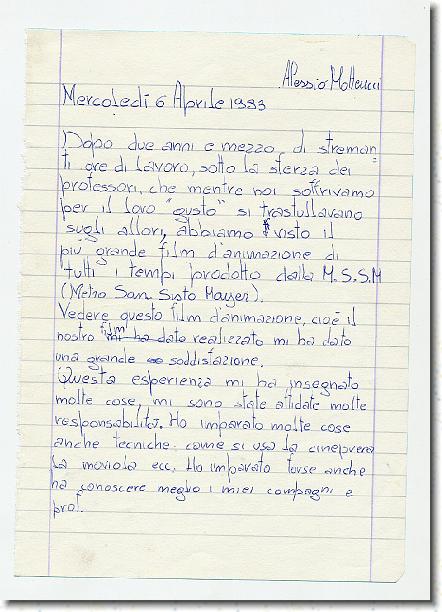 Alessio Matteucci
Mercoledì 6 Aprile 1993
Dopo due anni e mezzo, di streman=
ti ore di lavoro, sotto la sferza dei
professori, che mentre noi soffrivamo
per il loro "gusto" si trastullavano
sugli allori, abbiamo visto il
più grande film d'animazione di
tutti i tempi prodotto dalla M.S.S.M
(Metro San Sisto Mayer).
Vedere questo film d'animazione, cioè il
nostro film mi ha dato realizzato mi ha dato
una grande soddisfazione.
Questa esperienza mi ha insegnato
molte cose, mi sono state afidate molte
responsabilità. Ho imparato molte cose
anche tecniche come si usa la cinepresa
la moviola ecc. Ho imparato forse anche
ha conoscere meglio i miei compagni e
prof.